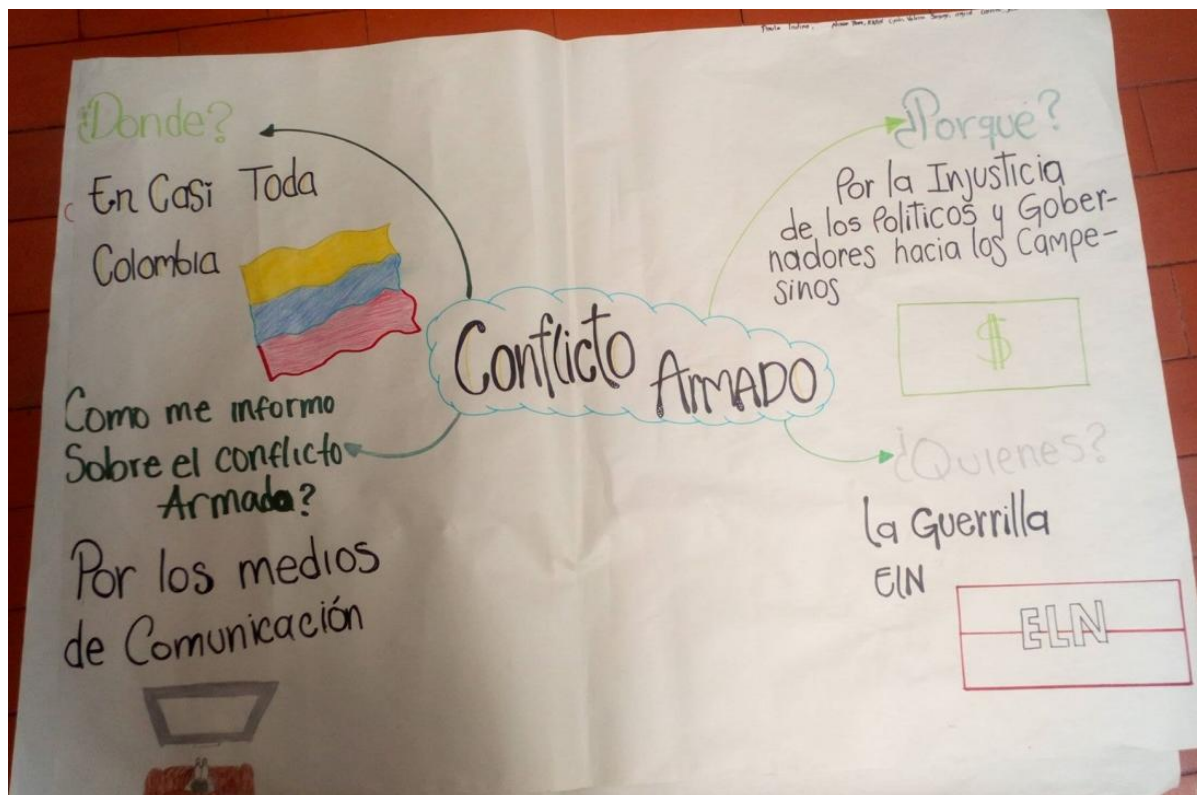 ¿Donde?
En Casi Toda
Colombia
Conflicto ArmADO
¿Porqué?
Por la Injusticia
de los Politicos y Gober-
nadores hacia los Campe-
sinos
$
Como me informo
Sobre el conflicto
Armado?
Por los medios
de Comunicación
¿Quienes?
la Guerrilla
ElN
ELN